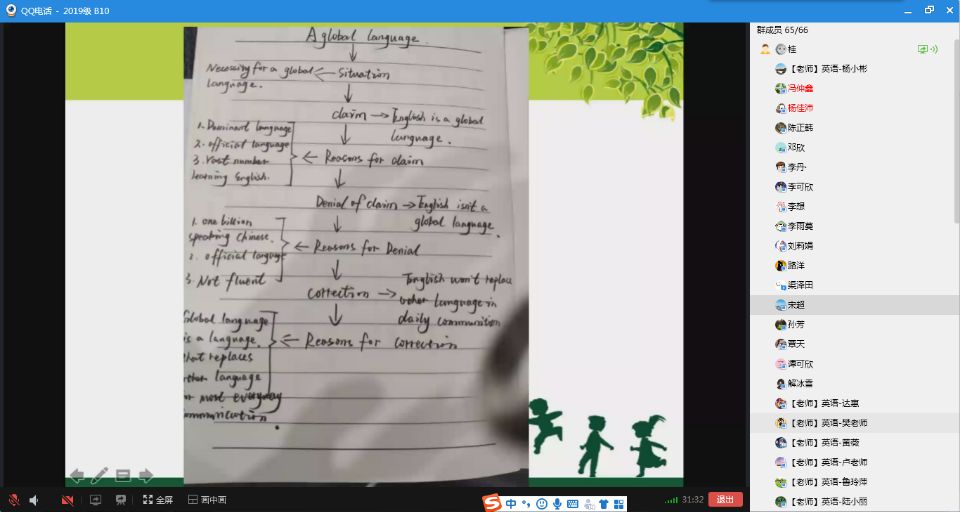 QQ电话 - 2019级 B10
A global language.
Necessity for a global
language.
Situation
claim
English is a global
language.
1. Dominant language
2. official language
3. Vast number
learning English.
Reasons for claim
Denial of claim
English isn't a
global language.
1. one billion
speaking Chinese.
2. official language
3. Not fluent
Reasons for Denial
correction
English won't replace
other language in
daily communition
Global language
is a language.
that replaces
other language
most everyday
communication.
Reasons for correction
全屏
画中画
中
31:32
退出
群成员 65/66
桂
【老师】英语-杨小彬
冯仲鑫
杨佳沛
陈正韩
邓欣
李丹·
李可欣
李想
李雨蔓
刘莉娟
路洋
梁泽田
宋超
孙芳
覃天
谭可欣
解冰雪
【老师】英语-达惠
【老师】英语-樊老师
【老师】英语-董薇
【老师】英语-卢老师
【老师】英语-鲁玲萍
【老师】英语-陆小丽